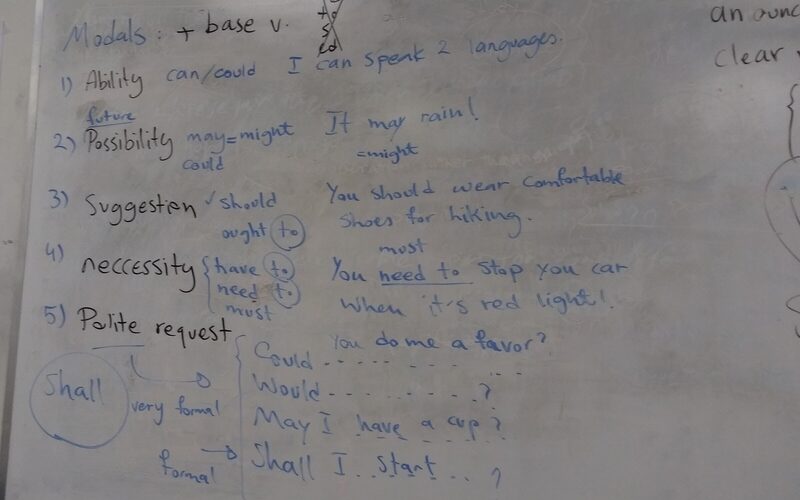 Modals: + base v. to s ed
1) Ability can/could I can speak 2 languages.
future
2) Possibility may=might It may rain!
could =might
3) Suggestion ✓ should You should wear comfortable
ought to shoes for hiking.
must
4) neccessity { have to You need to stop you car
need to when it's red light!
must
5) Polite request { Could you do me a favor?
Would ........ ?
Shall very formal May I have a cup?
formal Shall I start .. ?
an ounc
clear